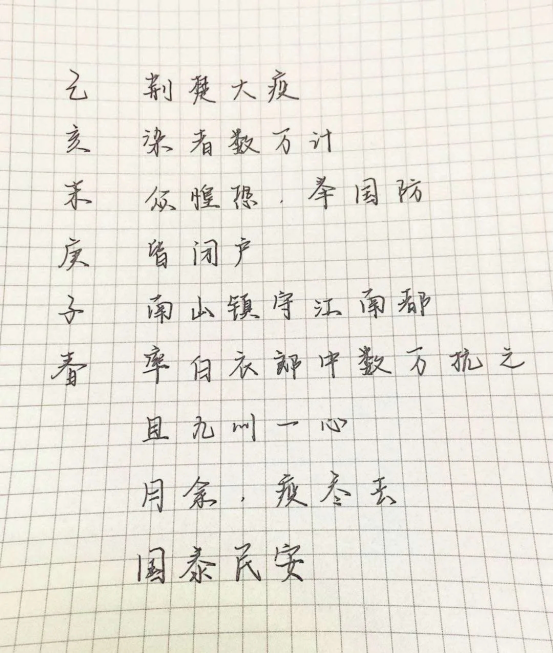 己亥末庚子春
荆楚大疫
染者数万计
众惶恐，举国防
皆闭户
南山镇守江南都
率白衣郎中数万抗之
且九州一心
月余，疫尽去
国泰民安